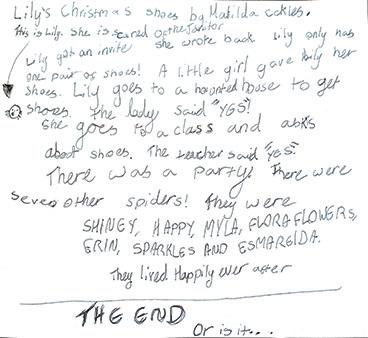 Lily's Christmas shoes by Matilda cckles.
This is Lily. She is scared of the Janitor
Lily got an invite she wrote back Lily only has
one pair of shoes! A little girl gave Lily her
shoes. Lily goes to a haunted house to get
shoes. The lady said "YGS"!
She goes to a class and asks
about shoes. The teacher said "YES".
There was a party! There were
seven other spiders! They were
SHINEY, HAPPY, MYLA, FLORA FLOWERS,
ERIN, SPARKLES AND ESMARELDA.
They lived Happily ever after
THE END
Or is it...